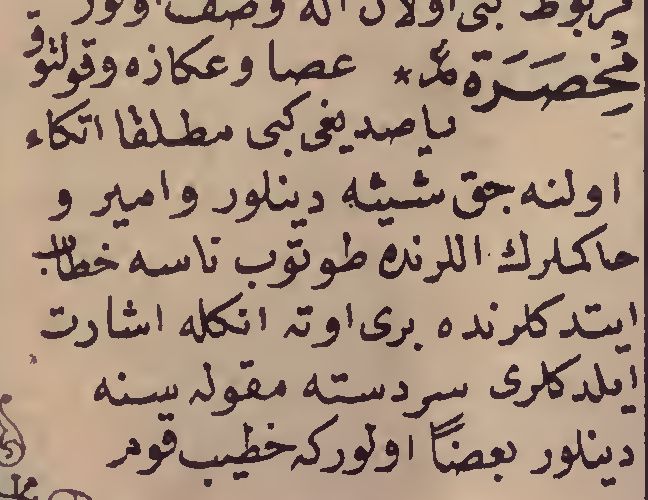 مربوط كبى اولان اكه وصف اولور
مُخْصَرَة ﷴ * عصا وعكازه وقولتوق
ياصديغى كبى مطلقا اتكاء
اولنه جق شيئه دينلور وامير و
حاكملرك اللرنده طوتوب ناسه خطاب
ايتدكلرنده برى اوته انكله اشارت
ايلدكلرى سردسته مقوله سنه
دينلور بعضاً اولوركه خطيب قوم